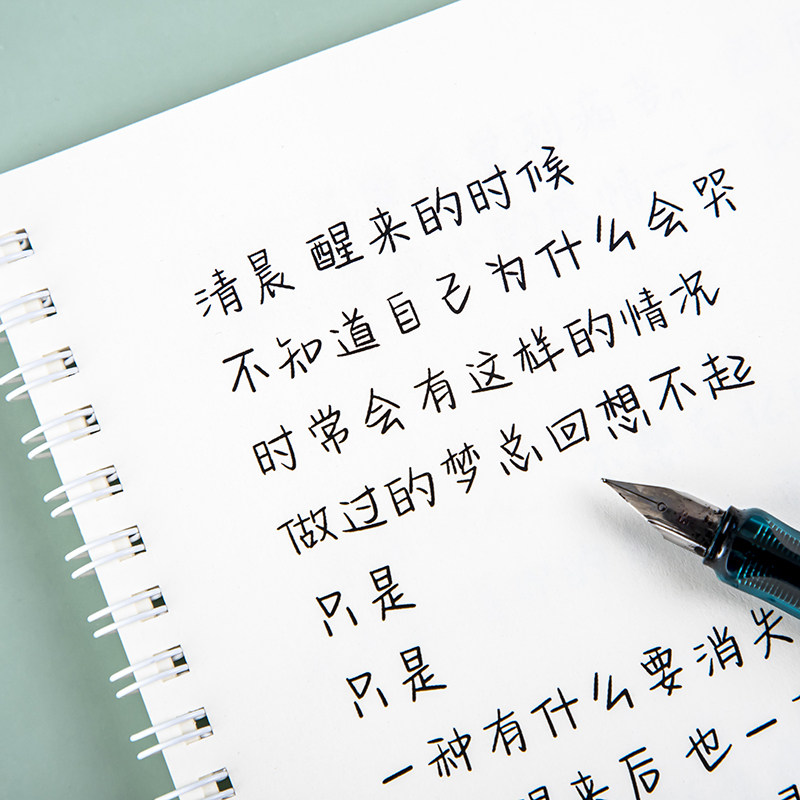 清晨 醒来的时候
不知道自己为什么会哭
时常会有这样的情况
做过的梦总回想不起
只是
只是
一种有什么要消失
醒来后也一